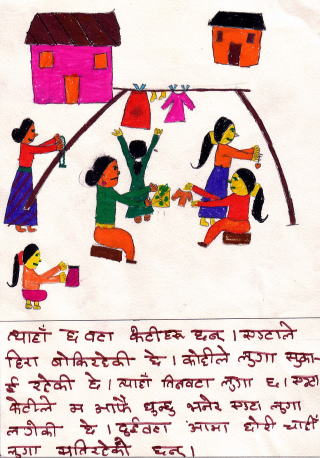 त्याहाँ छ वटा केटीहरु छन् । एउटाले
हिरा बोकिरहेकी छे । कोहीले लुगा सुका-
ई रहेकी छे । त्याहाँ तिनवटा लुगा छ । एउटा
केटीले म आफै धुन्छु भनेर एउटा लुगा
लगेकी छे । दुईवटा आमा छोरी चाहीँ
लुगा छन् ।